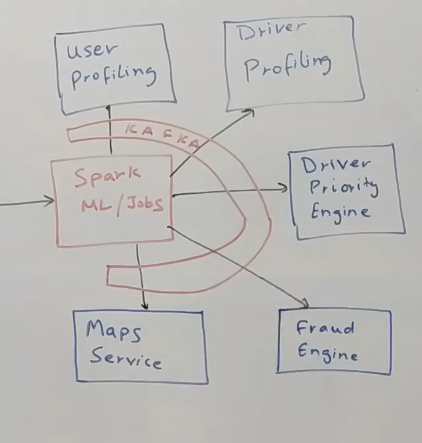 User
Profiling
Driver
Profiling
KAFKA
Spark
ML/Jobs
Driver
Priority
Engine
Maps
Service
Fraud
Engine